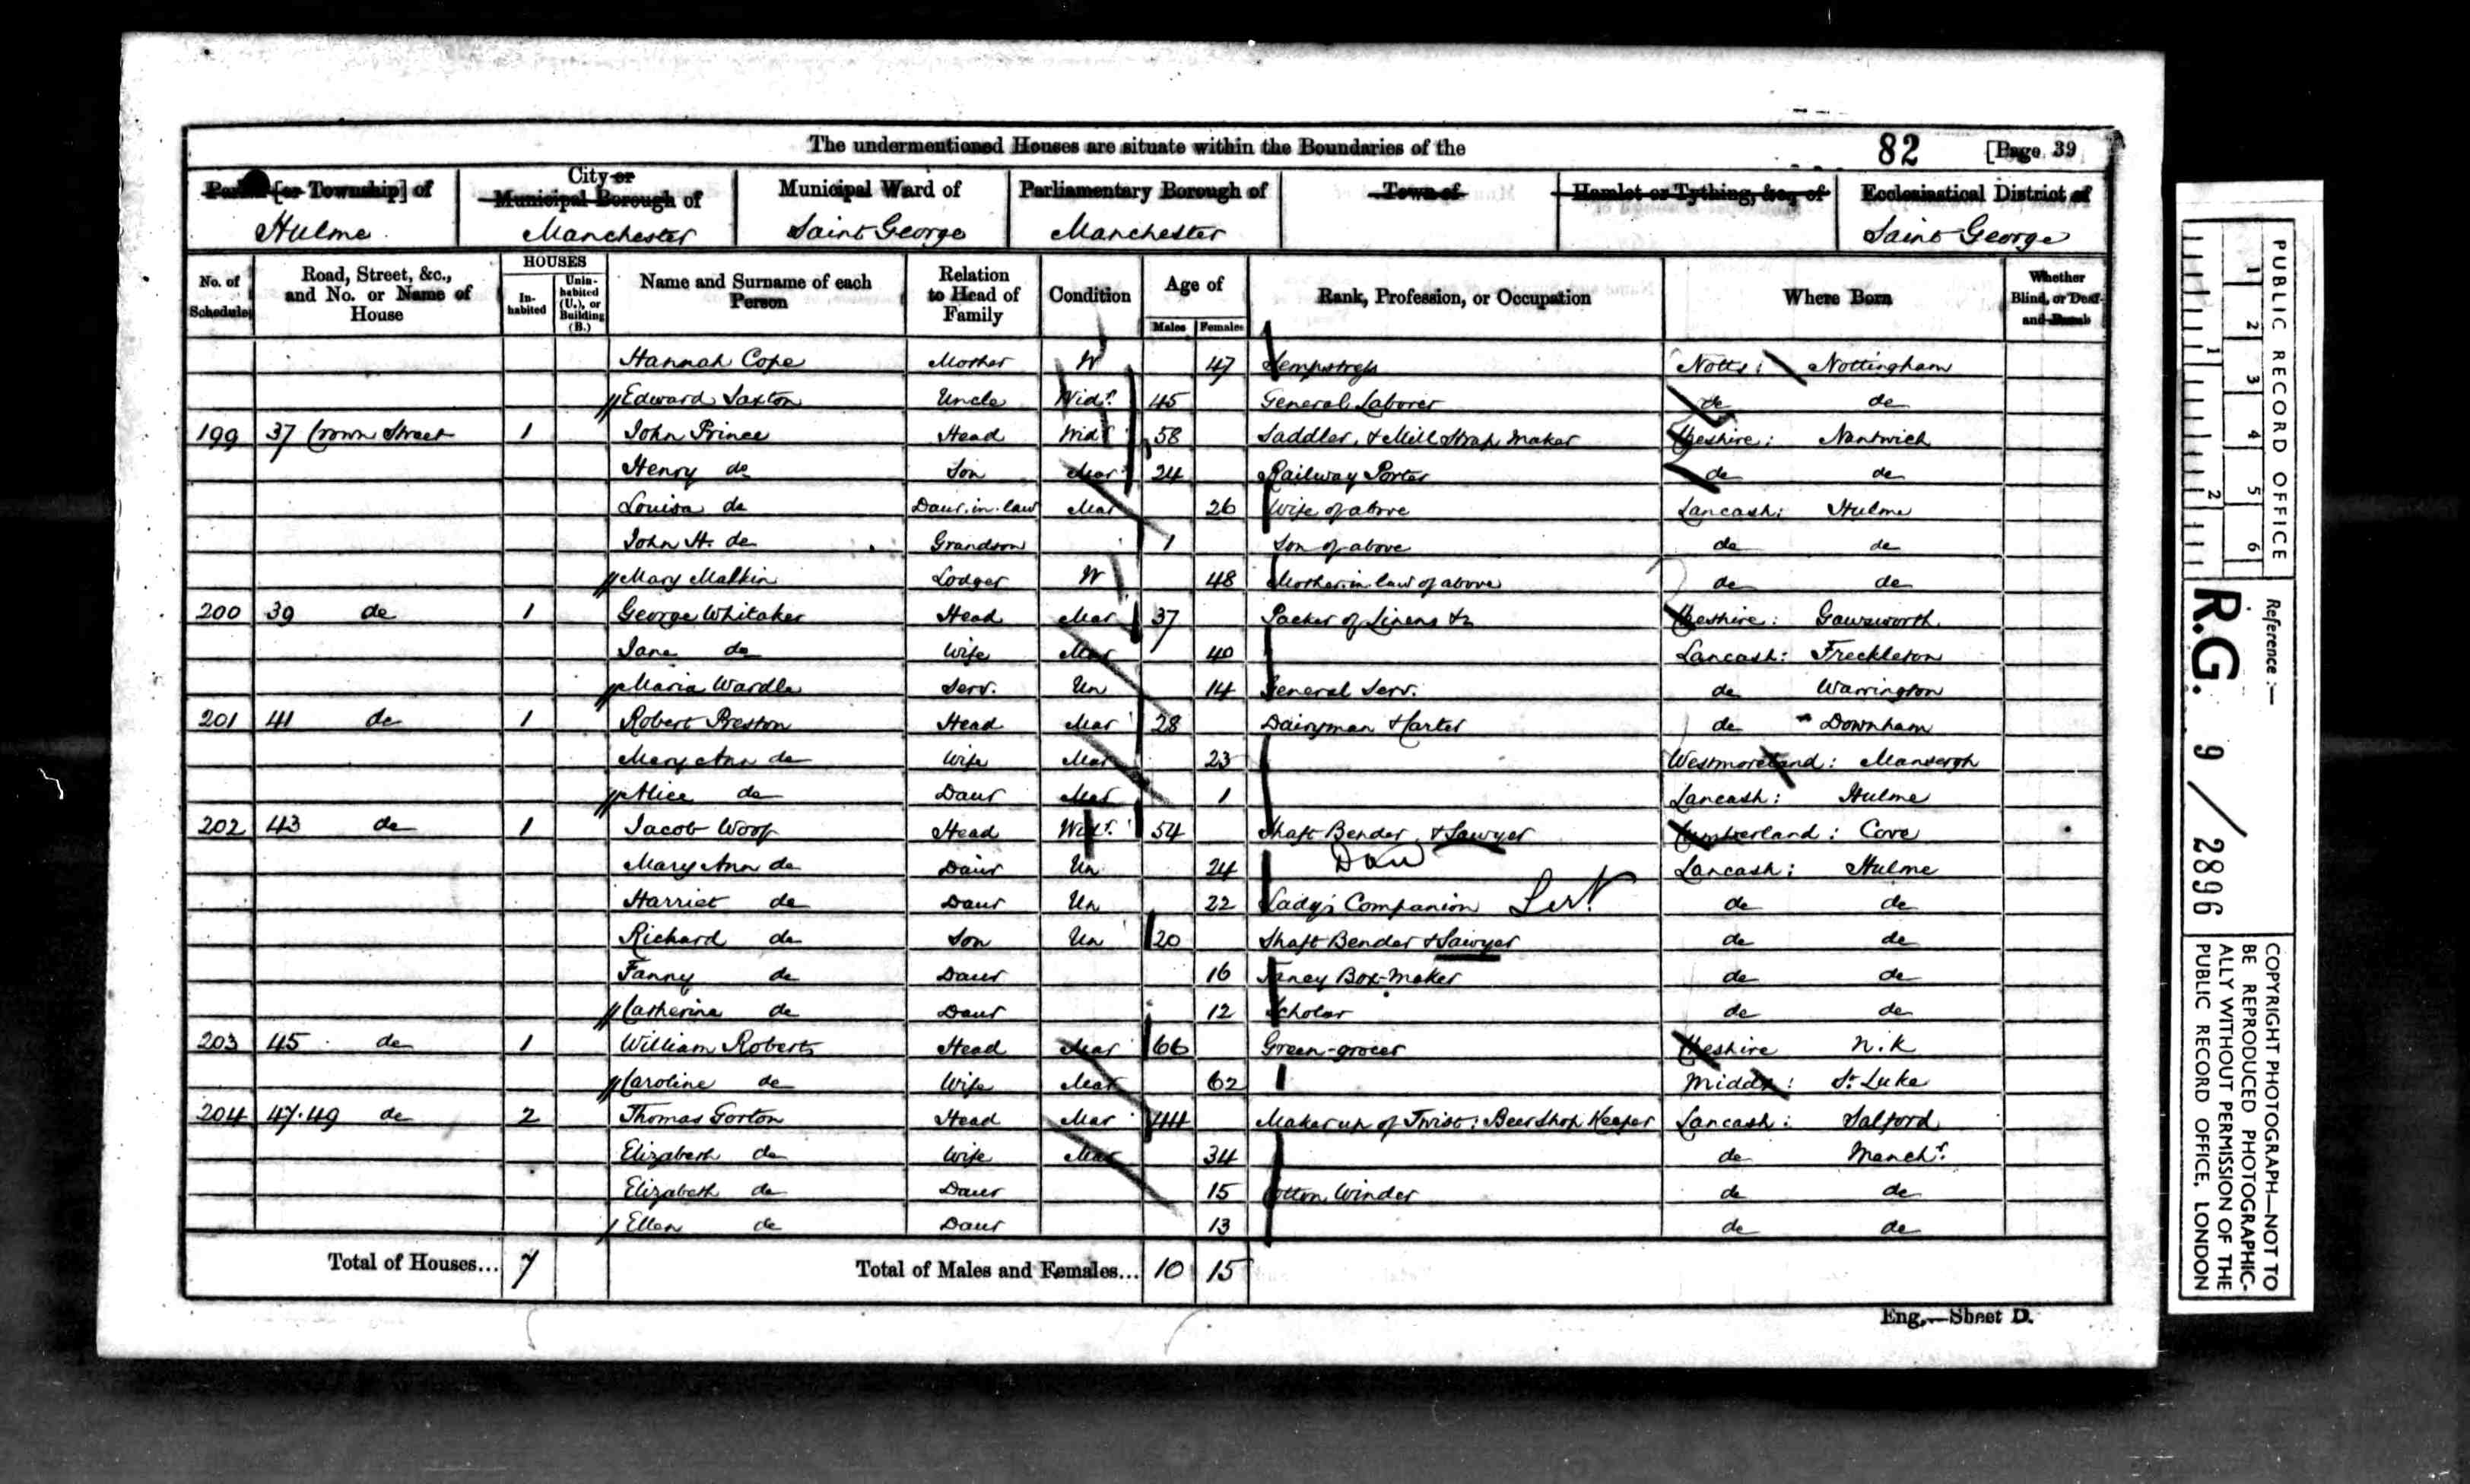 The undermentioned Houses are situate within the Boundaries of the 82 [Page 39
Parish [or Township] of City or Municipal Borough of Municipal Ward of Parliamentary Borough of Town of Hamlet or Tything, &c., of Ecclesiastical District of
Hulme Manchester Saint George Manchester Saint George
No. of Schedule Road, Street, &c., and No. or Name of House HOUSES Inhabited Uninhabited (U.), or Building (B.) Name and Surname of each Person Relation to Head of Family Condition Age of Males Females Rank, Profession, or Occupation Where Born Whether Blind, or Deaf-and-Dumb
Hannah Cope Mother W 47 Sempstress Notts: Nottingham
Edward Saxton Uncle Widr. 45 General Laborer do do
199 37 Crown Street 1 John Prince Head Widr 58 Saddler, & Mill Strap Maker Cheshire: Nantwich
Henry do Son Mar 24 Railway Porter do do
Louisa do Daur.in.law Mar 26 Wife of above Lancash: Hulme
John H. do Grandson 1 Son of above do do
Mary Malkin Lodger W 48 Mother in law of above do do
200 39 do 1 George Whitaker Head Mar 37 Packer of Linens &c Cheshire: Gawsworth
Jane do Wife Mar 40 Lancash: Freckleton
Maria Wardle Serv. Un 14 General Serv. do Warrington
201 41 do 1 Robert Preston Head Mar 28 Dairyman & Carter do Downham
Mary Ann do Wife Mar 23 Westmoreland: Mansergh
Alice do Daur Mar 1 Lancash: Hulme
202 43 do 1 Jacob Woof Head Widr. 54 Shaft Bender, & Sawyer Cumberland: Cove
Mary Ann do Daur Un 24 Dau Lancash: Hulme
Harriet do Daur Un 22 Lady's Companion Servt do do
Richard do Son Un 20 Shaft Bender & Sawyer do do
Fanny do Daur 16 Fancy Box-Maker do do
Catherine do Daur 12 Scholar do do
203 45 do 1 William Roberts Head Mar 66 Green-grocer Cheshire N.K
Caroline do Wife Mar 62 Middx: St. Luke
204 47.49 do 2 Thomas Gorton Head Mar 44 Maker up of Twist: Beer Shop Keeper Lancash: Salford
Elizabeth do Wife Mar 34 do Manchr.
Elizabeth do Daur 15 Cotton Winder do do
Ellen do Daur 13 do do
Total of Houses... 7 Total of Males and Females... 10 15
Eng.—Sheet D.
PUBLIC RECORD OFFICE
1 2 3 4 5 6
1 2
Reference:—
R.G. 9/2896
COPYRIGHT PHOTOGRAPH—NOT TO
BE REPRODUCED PHOTOGRAPHIC-
ALLY WITHOUT PERMISSION OF THE
PUBLIC RECORD OFFICE, LONDON